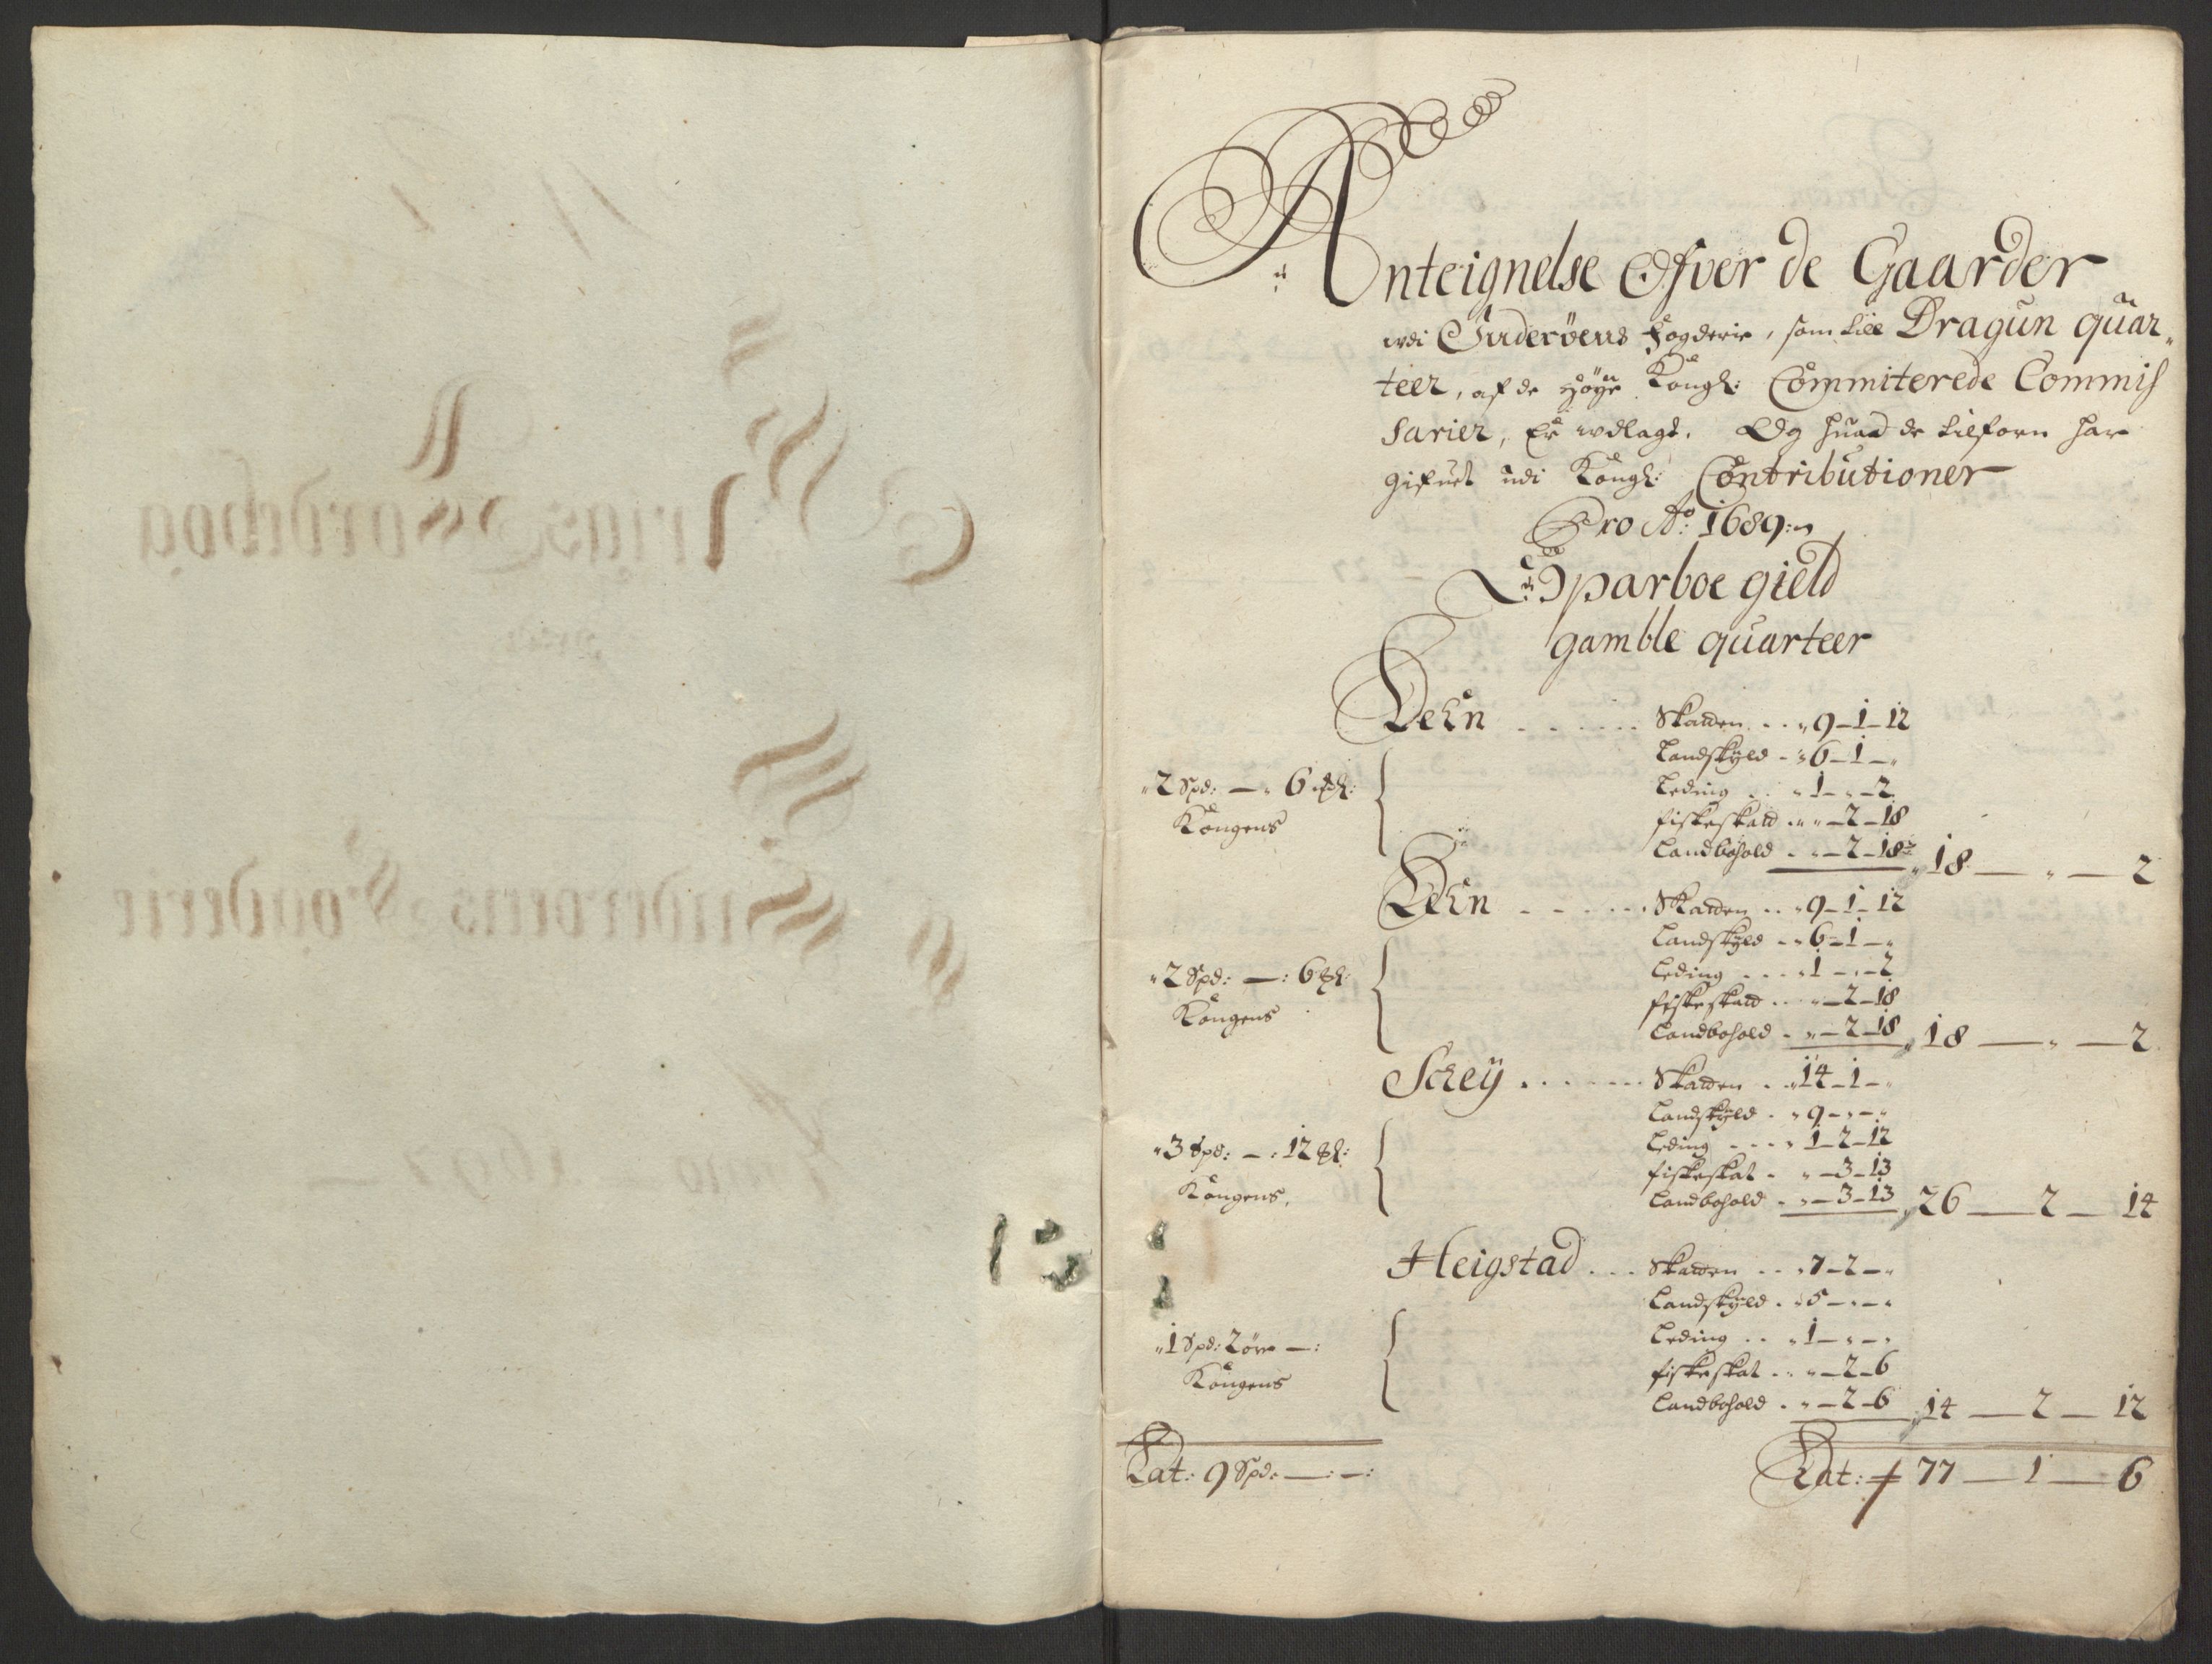 Anteignelse Ofver de Gaarder
udi Inderöens fogderie, som till Dragun quar-
teer, af de Höye Kongl: Committerede Commis
sarier, Er udlagt. Og huad de tilforn har
gifuet udi Kongl: Contributioner
Pro Ao: 1689:
Sparboe gield
gamble quarteer
Lehn . . . . . . Skatten . . 9 – 1 – 12
Landskyld . . 6 – 1 – "
2 Spd: — " 6 mkl:
Leding . . 1 – " – 2
Kongens
fiskeskatt . . " – 2 – 18
Landbohold . . " – 2 – 18 " 18 — " — 2
Lehn . . . . . . Skatten . . 9 – 1 – 12
Landskyld . . 6 – 1 – "
2 Spd: — : 6 mkl:
Leding . . . 1 – " – 2
Kongens
fiskeskatt . . " – 2 – 18
Landbohold . " – 2 – 18 " 18 — " — 2
Schey . . . . . . Skatten . . 14 – 1 – "
Landskyld . " 9 – " – "
3 Spd: — : 12 mkl:
Leding . . . . 1 – 2 – 12
Kongens
fiskeskat . " – 3 – 13
Landbohold . " – 3 – 13 " 26 — 2 — 14
Heigstad . . . Skatten . . . 7 – 2 – "
Landskyld . " 5 – " – "
1 Spd: 2 öre — :
Leding . . " 1 – " – "
Kongens
fiskeskat . . " – 2 – 6
Landbohold . " – 2 – 6 " 14 — 2 — 12
Lat: 9 Spd: — : — :
Lat: 77 — 1 — 6